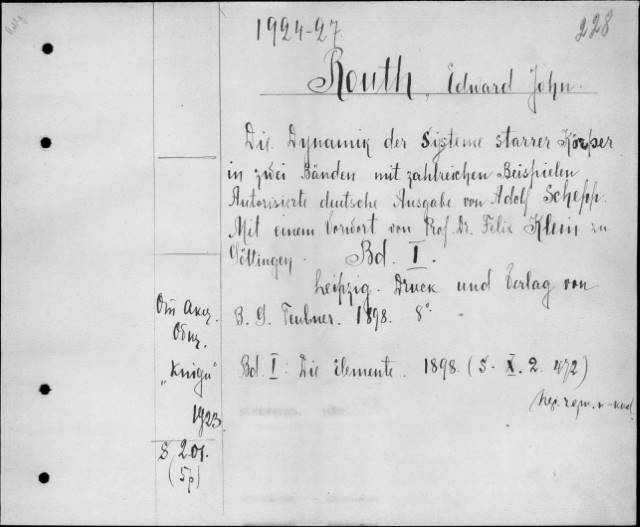 1924-27.
228
Routh, Edward John.
Die Dynamik der Systeme starrer Körper
in zwei Bänden mit zahlreichen Beispielen
Autorisierte deutsche Ausgabe von Adolf Schepp.
Mit einem Vorwort von Prof. Dr. Felix Klein zu
Göttingen. Bd. I.
Leipzig. Druck und Verlag von
B. G. Teubner. 1898. 8°.
Bd. I: Die Elemente. 1898. (S. X. 2. 472)
От Акц.
Общ.
„Книга"
1923.
8 201.
(5р)